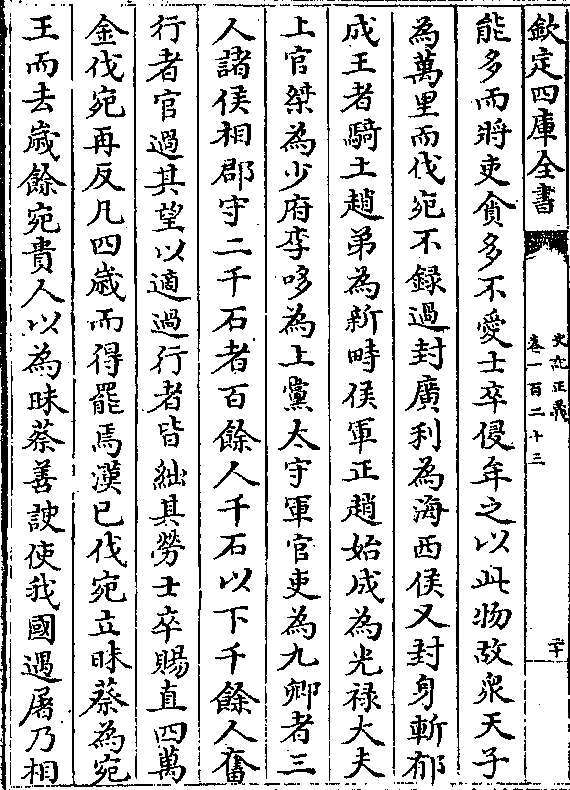 欽定四庫全書
史記正義
卷一百二十三
二十
能多而將吏貪多不愛士卒侵牟之以此物故衆天子
為萬里而伐宛不録過封廣利為海西侯又封身斬郁
成王者騎士趙弟為新畤侯軍正趙始成為光禄大夫
上官桀為少府李哆為上黨太守軍官吏為九卿者三
人諸侯相郡守二千石者百餘人千石以下千餘人奮
行者官過其望以適過行者皆絀其勞士卒賜直四萬
金伐宛再反凡四歲而得罷焉漢已伐宛立昧蔡為宛
王而去歲餘宛貴人以為昧蔡善諛使我國遇屠乃相